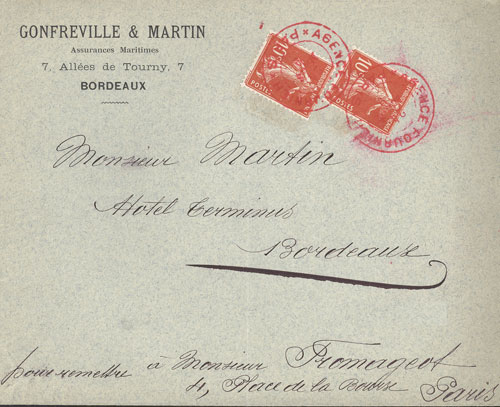 GONFREVILLE & MARTIN
Assurances Maritimes
7, Allées de Tourny, 7
BORDEAUX
PA × AGENCE
AGENCE FOURNIER
10
POSTES
10
POSTES
Monsieur Martin
Hotel Terminus
Bordeaux
pour remettre à Monsieur Fromageot
4, Place de la Bourse Paris